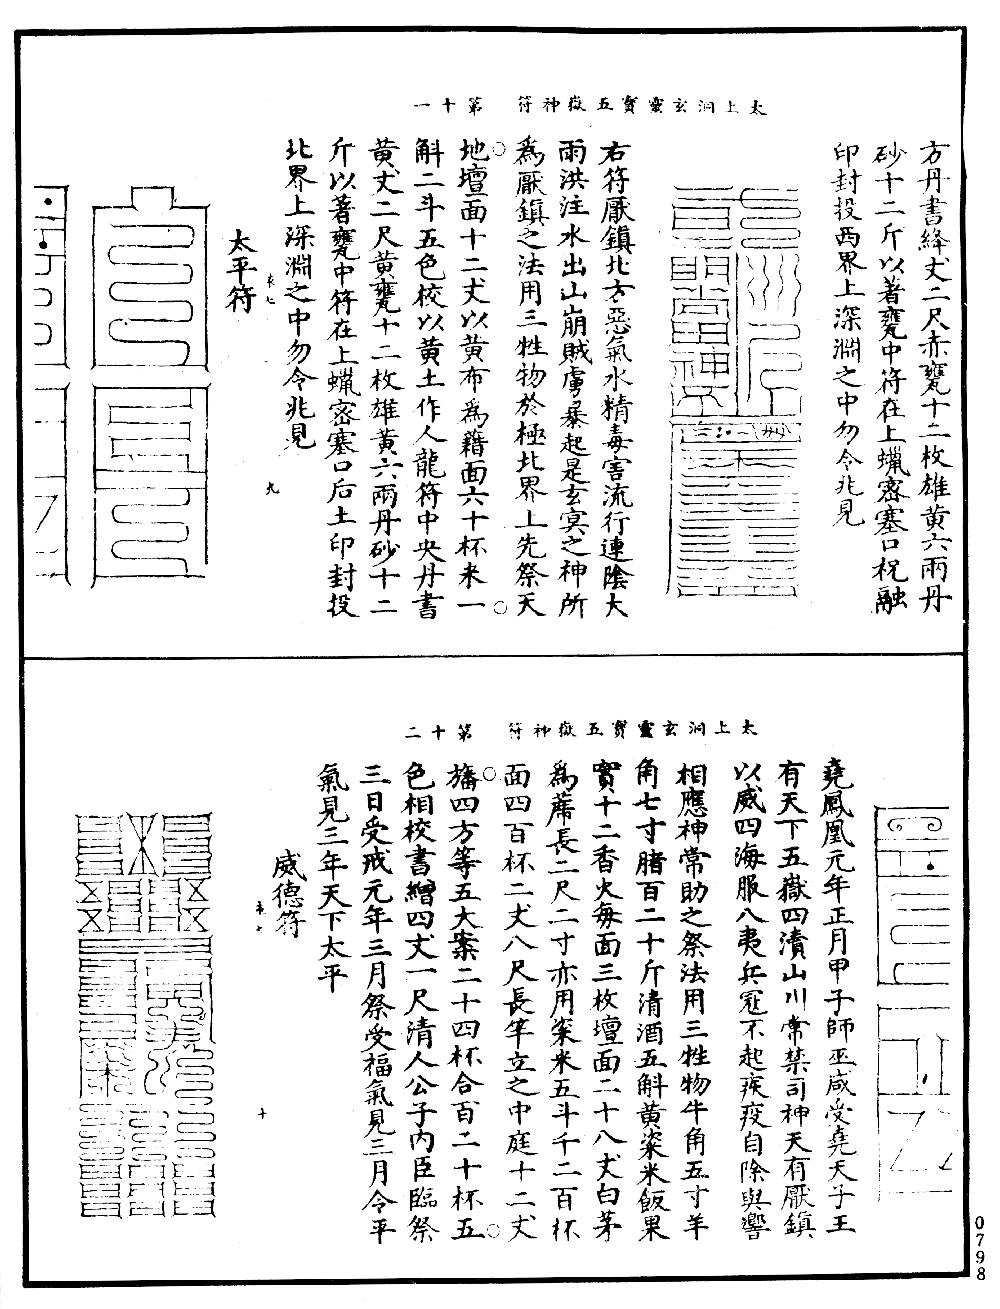 太上洞玄靈寶五嶽神符　第十一
方丹書絳丈二尺赤甕十二枚雄黃六兩丹
砂十二斤以著甕中符在上蠟密塞口祝融
印封投西界上深淵之中勿令兆見
右符厭鎮北方惡氣水精毒害流行連陰大
雨洪注水出山崩賊虜暴起是玄冥之神所
為厭鎮之法用三牲物於極北界上先祭天
地壇面十二丈以黃布為藉面六十杯米一
斛二斗五色校以黃土作人龍符中央丹書
黃丈二尺黃甕十二枚雄黃六兩丹砂十二
斤以著甕中符在上蠟密塞口后土印封投
北界上深淵之中勿令兆見
太平符
衣七　九
太上洞玄靈寶五嶽神符　第十二
堯鳳凰元年正月甲子師巫咸受堯天子王
有天下五嶽四瀆山川常禁司神天有厭鎮
以威四海服八夷兵寇不起疾疫自除與響
相應神常助之祭法用三牲物牛角五寸羊
角七寸腊百二十斤清酒五斛黃粢米飯果
實十二香火每面三枚壇面二十八丈白茅
為蓆長二尺二寸亦用粢米五斗千二百杯
面四百杯二丈八尺長竿立之中庭十二丈
旛四方等五大案二十四杯合百二十杯五
色相校書繒四丈一尺清人公子內臣臨祭
三日受戒元年三月祭受福氣見三月令平
氣見三年天下太平
威德符
衣七　十
0798